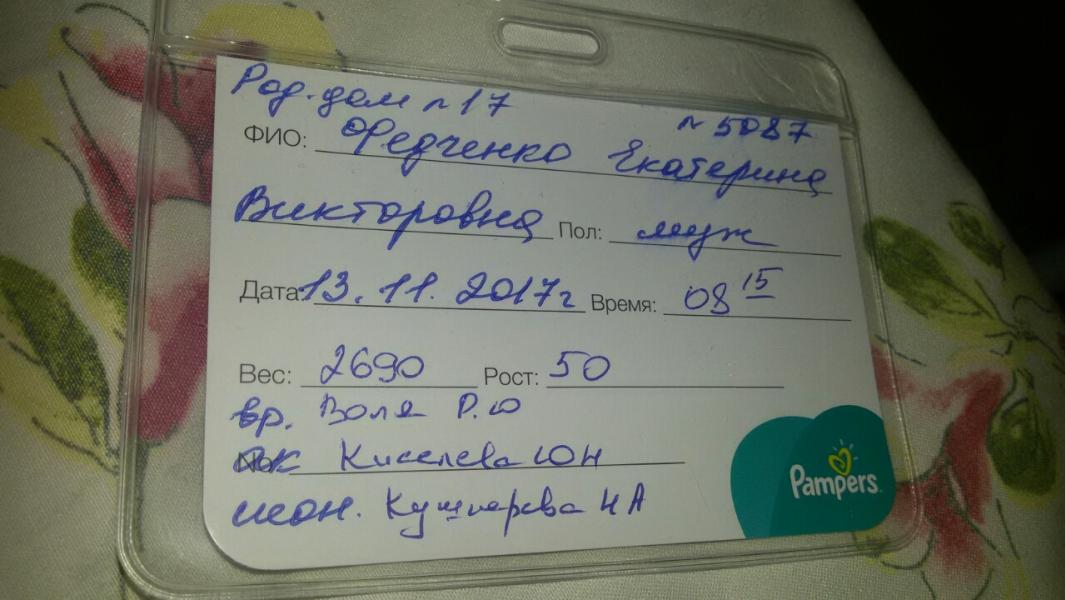 Род. дом n 17
n 5087
ФИО: Федченко Екатерина
Викторовна Пол: муж
Дата: 13.11.2017г Время: 08 15
Вес: 2690 Рост: 50
вр. Воля Р.Ю
Киселева ЮН
Кушнерева Н А
Pampers